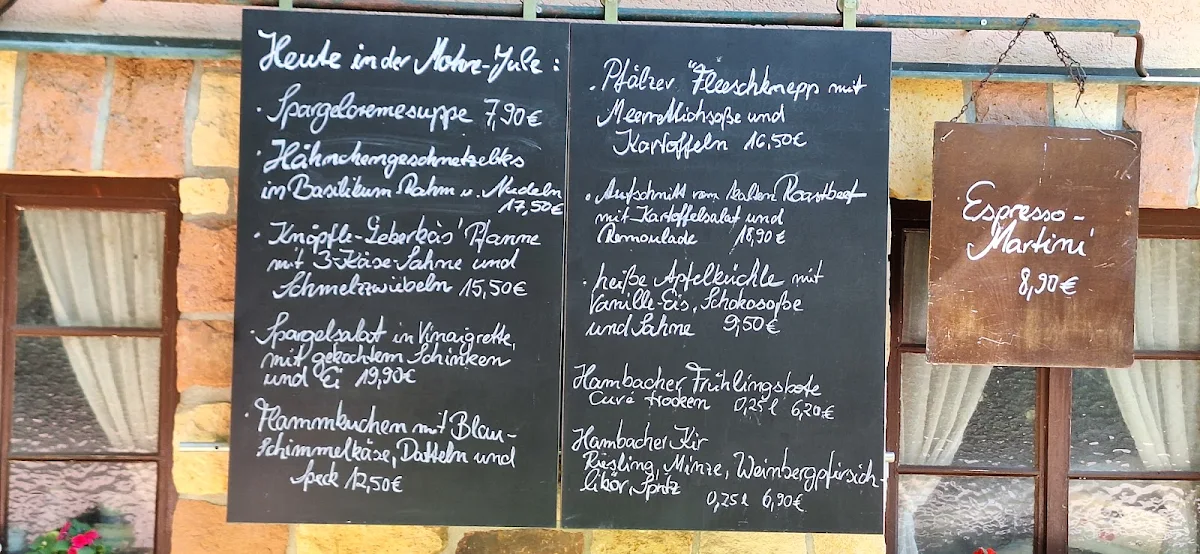 Heute in der Mohre-Jule:
· Spargelcremesuppe 7,90€
· Hähnchengeschnetzeltes
in Basilikum Rahm u. Nudeln
17,50€
· Knöpfle-Leberkäs' Pfanne
mit 3-Käse-Sahne und
Schmelzzwiebeln 15,50€
· Spargelsalat in Vinaigrette,
mit gekochtem Schinken
und Ei 19,90€
· Flammkuchen mit Blau-
Schimmelkäse, Datteln und
Speck 12,50€
· Pfälzer "Fleeschknepp mit
Meerrettichsoße und
Kartoffeln 16,50€
· Aufschnitt vom kalten Roastbeef
mit Kartoffelsalat und
Remoulade 18,90€
· heiße Apfelküchle mit
Vanille-Eis, Schokosoße
und Sahne 9,50€
Hambacher Frühlingsbote
Cuvé trocken 0,25l 6,20€
Hambacher Kir
Riesling, Minze, Weinbergpfirsich-
likör, Spritz
0,25l 6,90€
Espresso-
Martini
8,90€